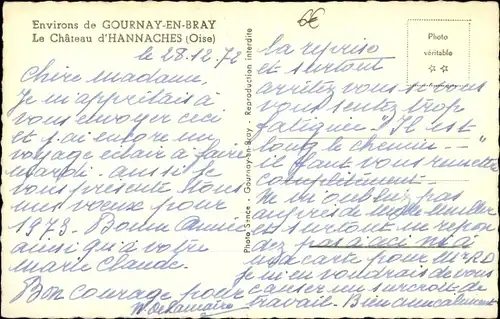 Environs de GOURNAY-EN-BRAY
Le Château d'HANNACHES (Oise)
le 28.12.72
Chère madame,
Je m'apprêtais à
vous envoyer ceci
et j'ai encore un
voyage éclair à faire
mardi. aussi je
vous présente tous
mes vœux pour
1973. Bonne Année
ainsi qu'à votre
marie Claude.
Bon courage pour
Photo Sence - Gournay-en-Bray - Reproduction interdite
Photo
véritable
la reprise
et surtout
arrêtez vous
vous sentez trop
fatiguée "Il est
long le chemin" --
il faut vous remettre
complètement --
Ne m'oubliez pas
auprès de
et surtout ne
dez pas à
ma carte pour
je m'en voudrais de vous
causer un surcroît de
travail. Bien amicalement